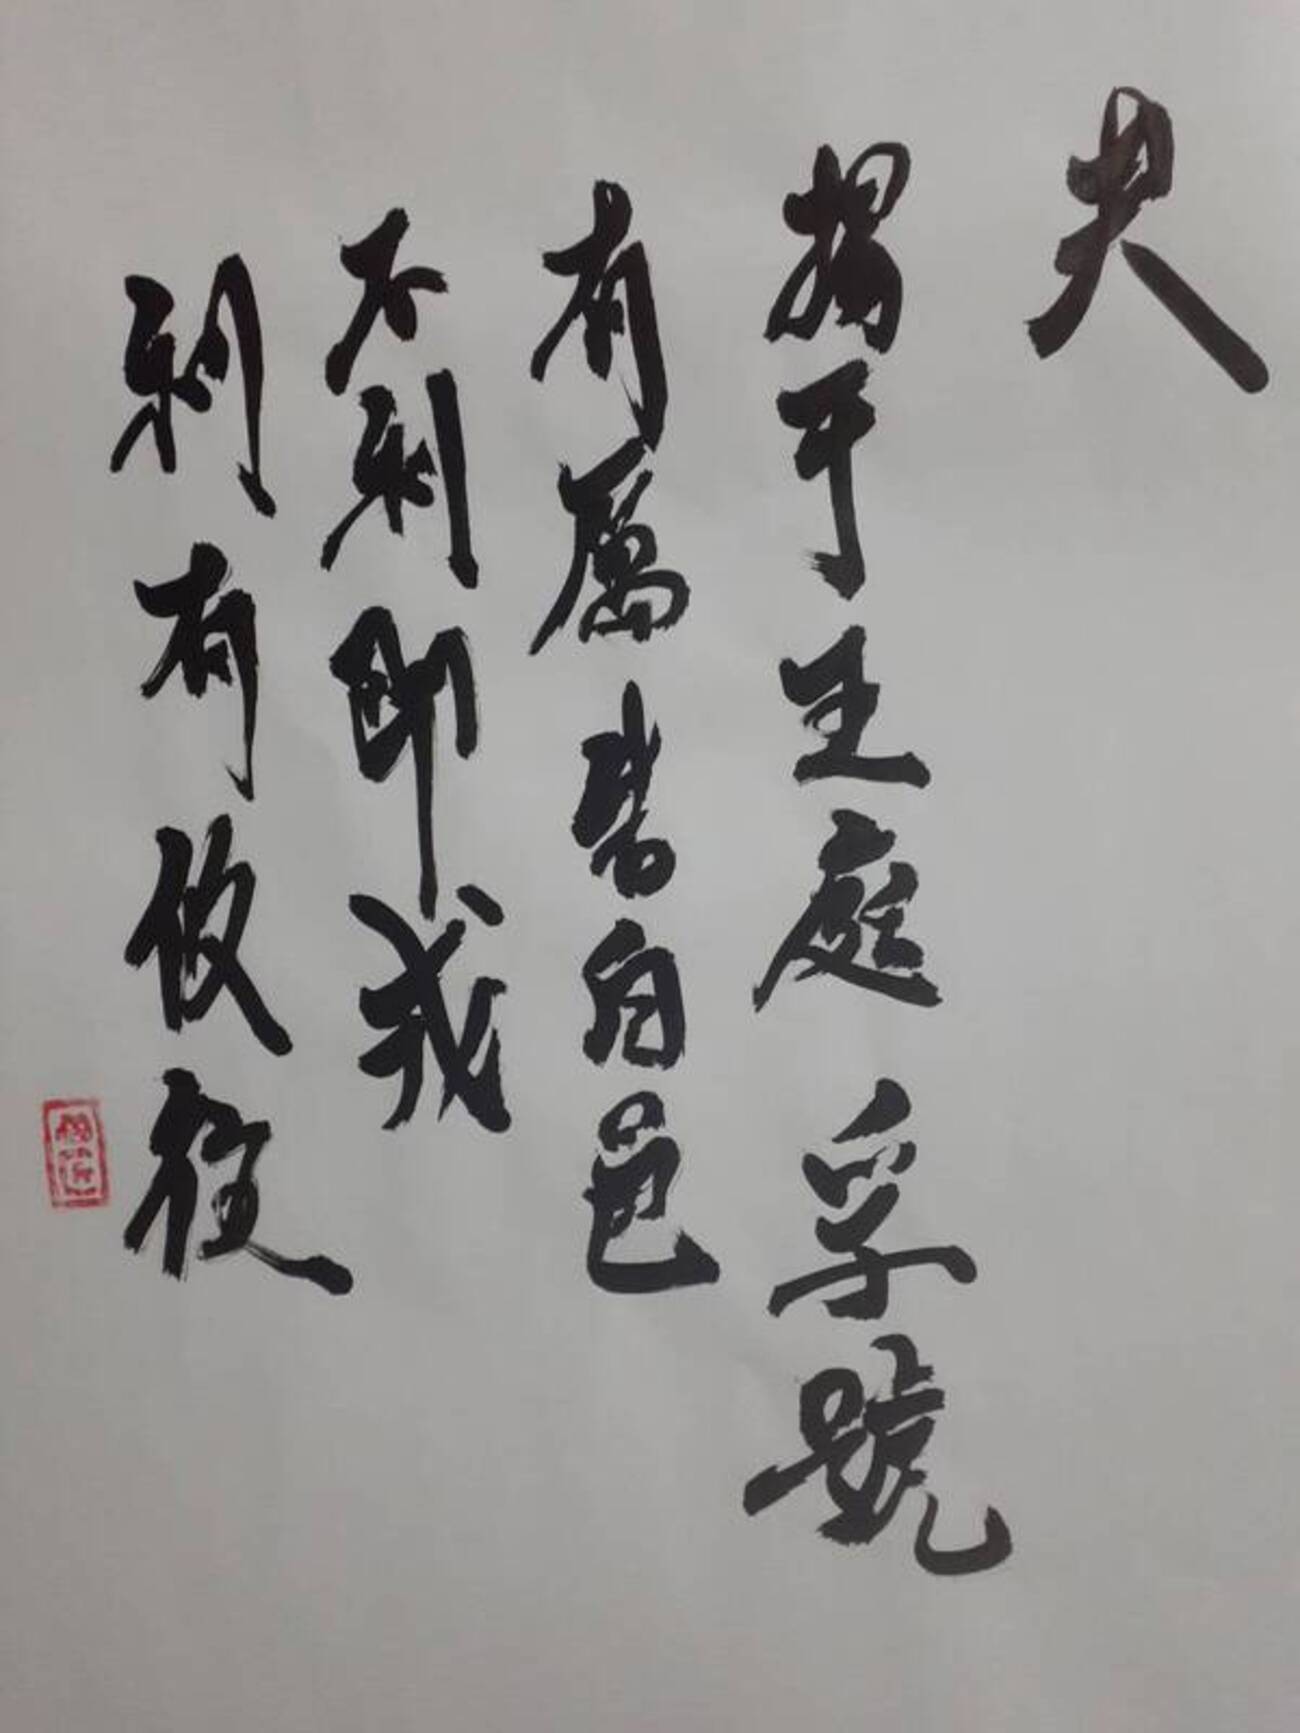 夬
揚于王庭孚號
有厲告自邑
不利即戎
利有攸往